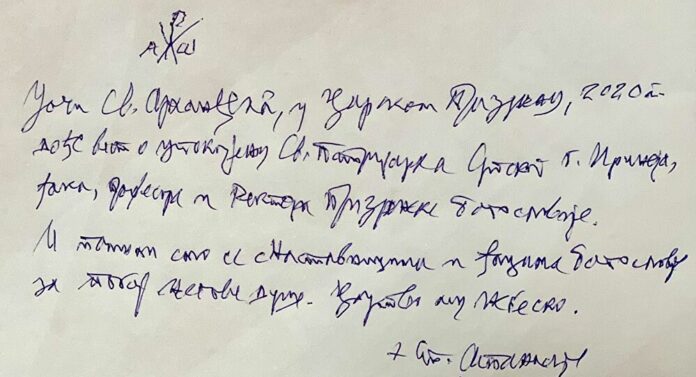 А Р Ω
Уочи Св. Архангела, у Царском Призрену, 2020-
вест о упокојењу Св. Патријарха Српског г. Иринеја,
ђака, професора и Ректора Призренске Богословије.
И помолисмо се с Наставницима и ђацима Богословије
за покој његове душе. Царство му Небеско.
+ Еп. Атанасије